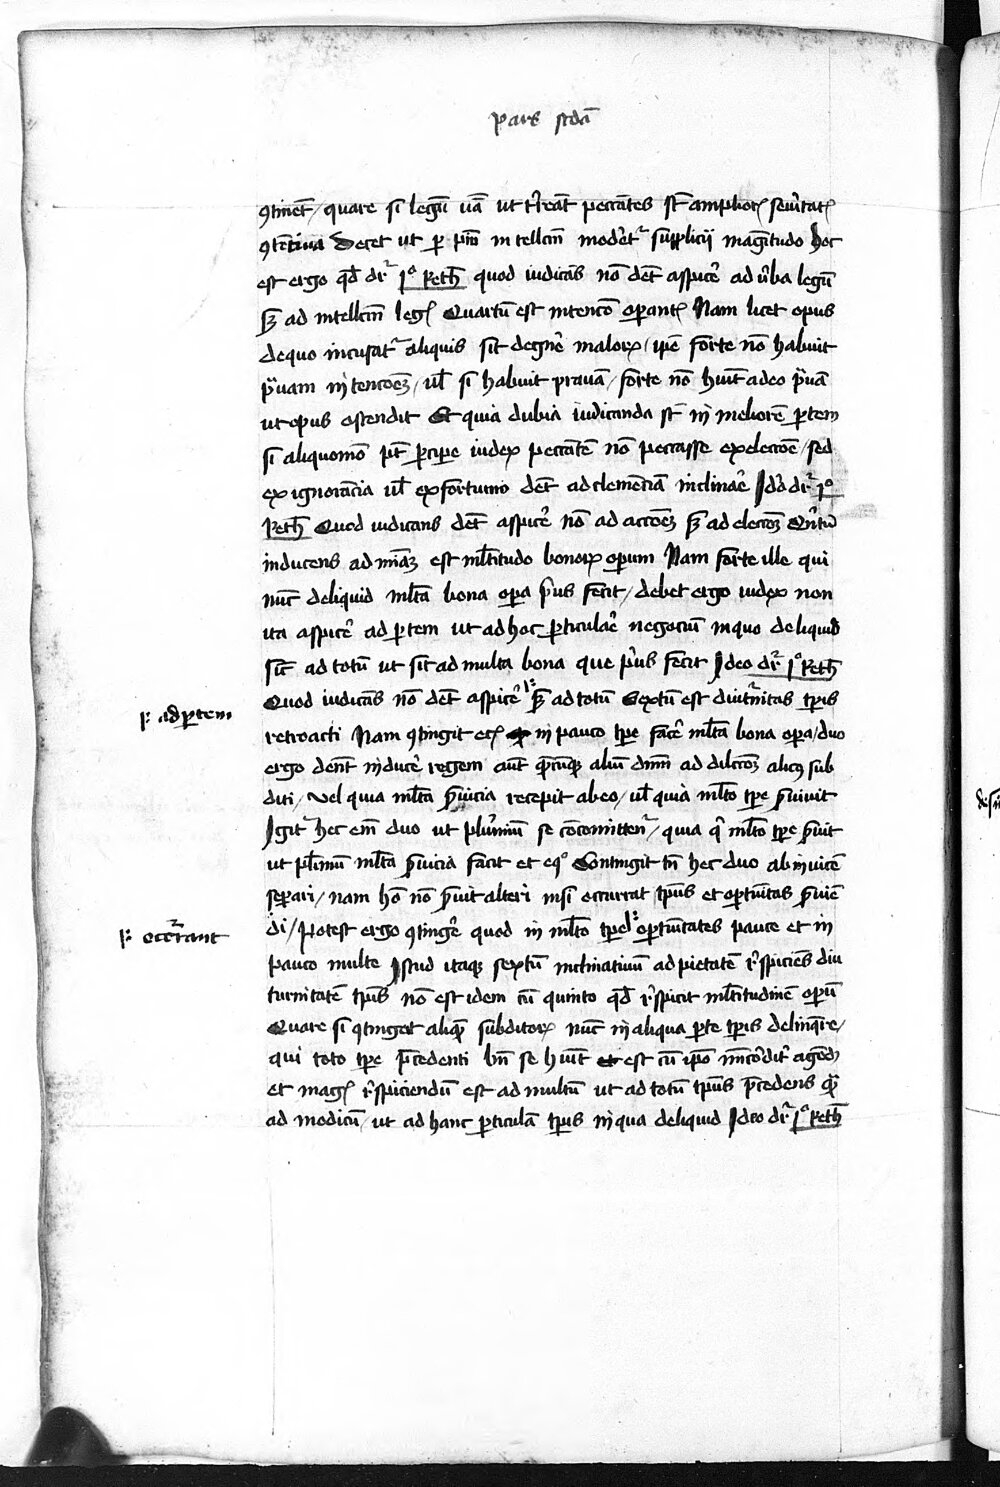 Pars scdā
ꝯtinēt / quare si legū uā ut t'reāt peccātes st̄ amplior̄ seu'itat̄
ꝯtētiua decet ut ꝑ pm̄ intellcm̄ modet᷑ supplicij magītudo hoc
est ergo qd̄ dr᷑ jᵒ Reth̄ quod iudicās nō det̄ aspic'e ad u'ba legū
sꝫ ad intellcm̄ leḡ Quartū est intencō opant̄ Nam licet opus
de quo incusat᷑ aliquis sit de gn'e maloꝝ / ipē forte nō habuit
p̄uam intencōeꝫ / ul̄ si habuit prauā / forte nō hūit adeo p̄uā
ut opus ostendit Et quia dubia iudicanda st̄ in meliorē ꝑtem
si aliquomō pt̄ ꝑcipe iudex peccātē nō peccasse ex eleccōe / sed
ex ignorācia ul̄ ex fortunio det̄ ad clemēciā inclinar'e Ido dr᷑ jᵒ
Reth̄ Quod iudicans det̄ aspic'e nō ad accōeꝫ sꝫ ad eleccōꝫ Qn̄tū
inducens ad mīaꝫ est ml̄titudo bonoꝝ opum Nam forte ille qui
nūc deliquid ml̄ta bona opa p'us fecit / debet ergo iudex non
ita aspic'e ad ꝑtem ut ad hoc ꝑticular'e negociū in quo deliquid
sic̄ ad totū ut sic̄ ad multa bona que p'us fecit Ideo dr᷑ jᵒ Reth̄
Quod iudicās nō det̄ aspic'e sꝫ ad totū Sextū est diut'nitas tp̄is
ad ꝑtem
retroacti Nam ꝯtingit in pauco tp̄e fac'e ml̄ta bona opa / duo
ergo dēnt induc'e regem aut alium dnm̄ ad dilcōꝫ alicꝰ sub
diti / vel quia ml̄ta s̄uicia recepit ab eo / ul̄ quia ml̄to tp̄e s̄uiuit
Igit᷑ hec em̄ duo ut plurimū se cōcomitten᷑ / quia q' ml̄to tp̄e s̄uit
ut pl̄imū ml̄ta s̄uicia facit et eqᵒ Contingit tn̄ hec duo ab inuicē
separi / nam hō nō s̄uit alteri nisi occurrat tp̄us et oportūitas s̄uiē
di / Potest ergo ꝯting'e quod in ml̄to tp̄e oportūitates pauce et in
occ'rant
pauco multe Istud itaqꝫ sextū inclinatiuū ad pietatē r'spiciēs diu
turnitatē tp̄us nō est idem cū quinto qd̄ r'spicit ml̄titudinē opū
Quare si ꝯtingat aliqm̄ subditoꝝ nūc in aliqua ꝑte tp̄is delinqu'e /
qui toto tp̄e p̄cedenti bn̄ se hūit est cū ip̄o agēd̄
et maḡ r'spiciendū est ad multū ut ad totū tp̄us p̄cedens qm̄
ad modicū / ut ad hanc ꝑticulā tp̄us in qua deliquid Ideo dr᷑ jᵒ Reth̄